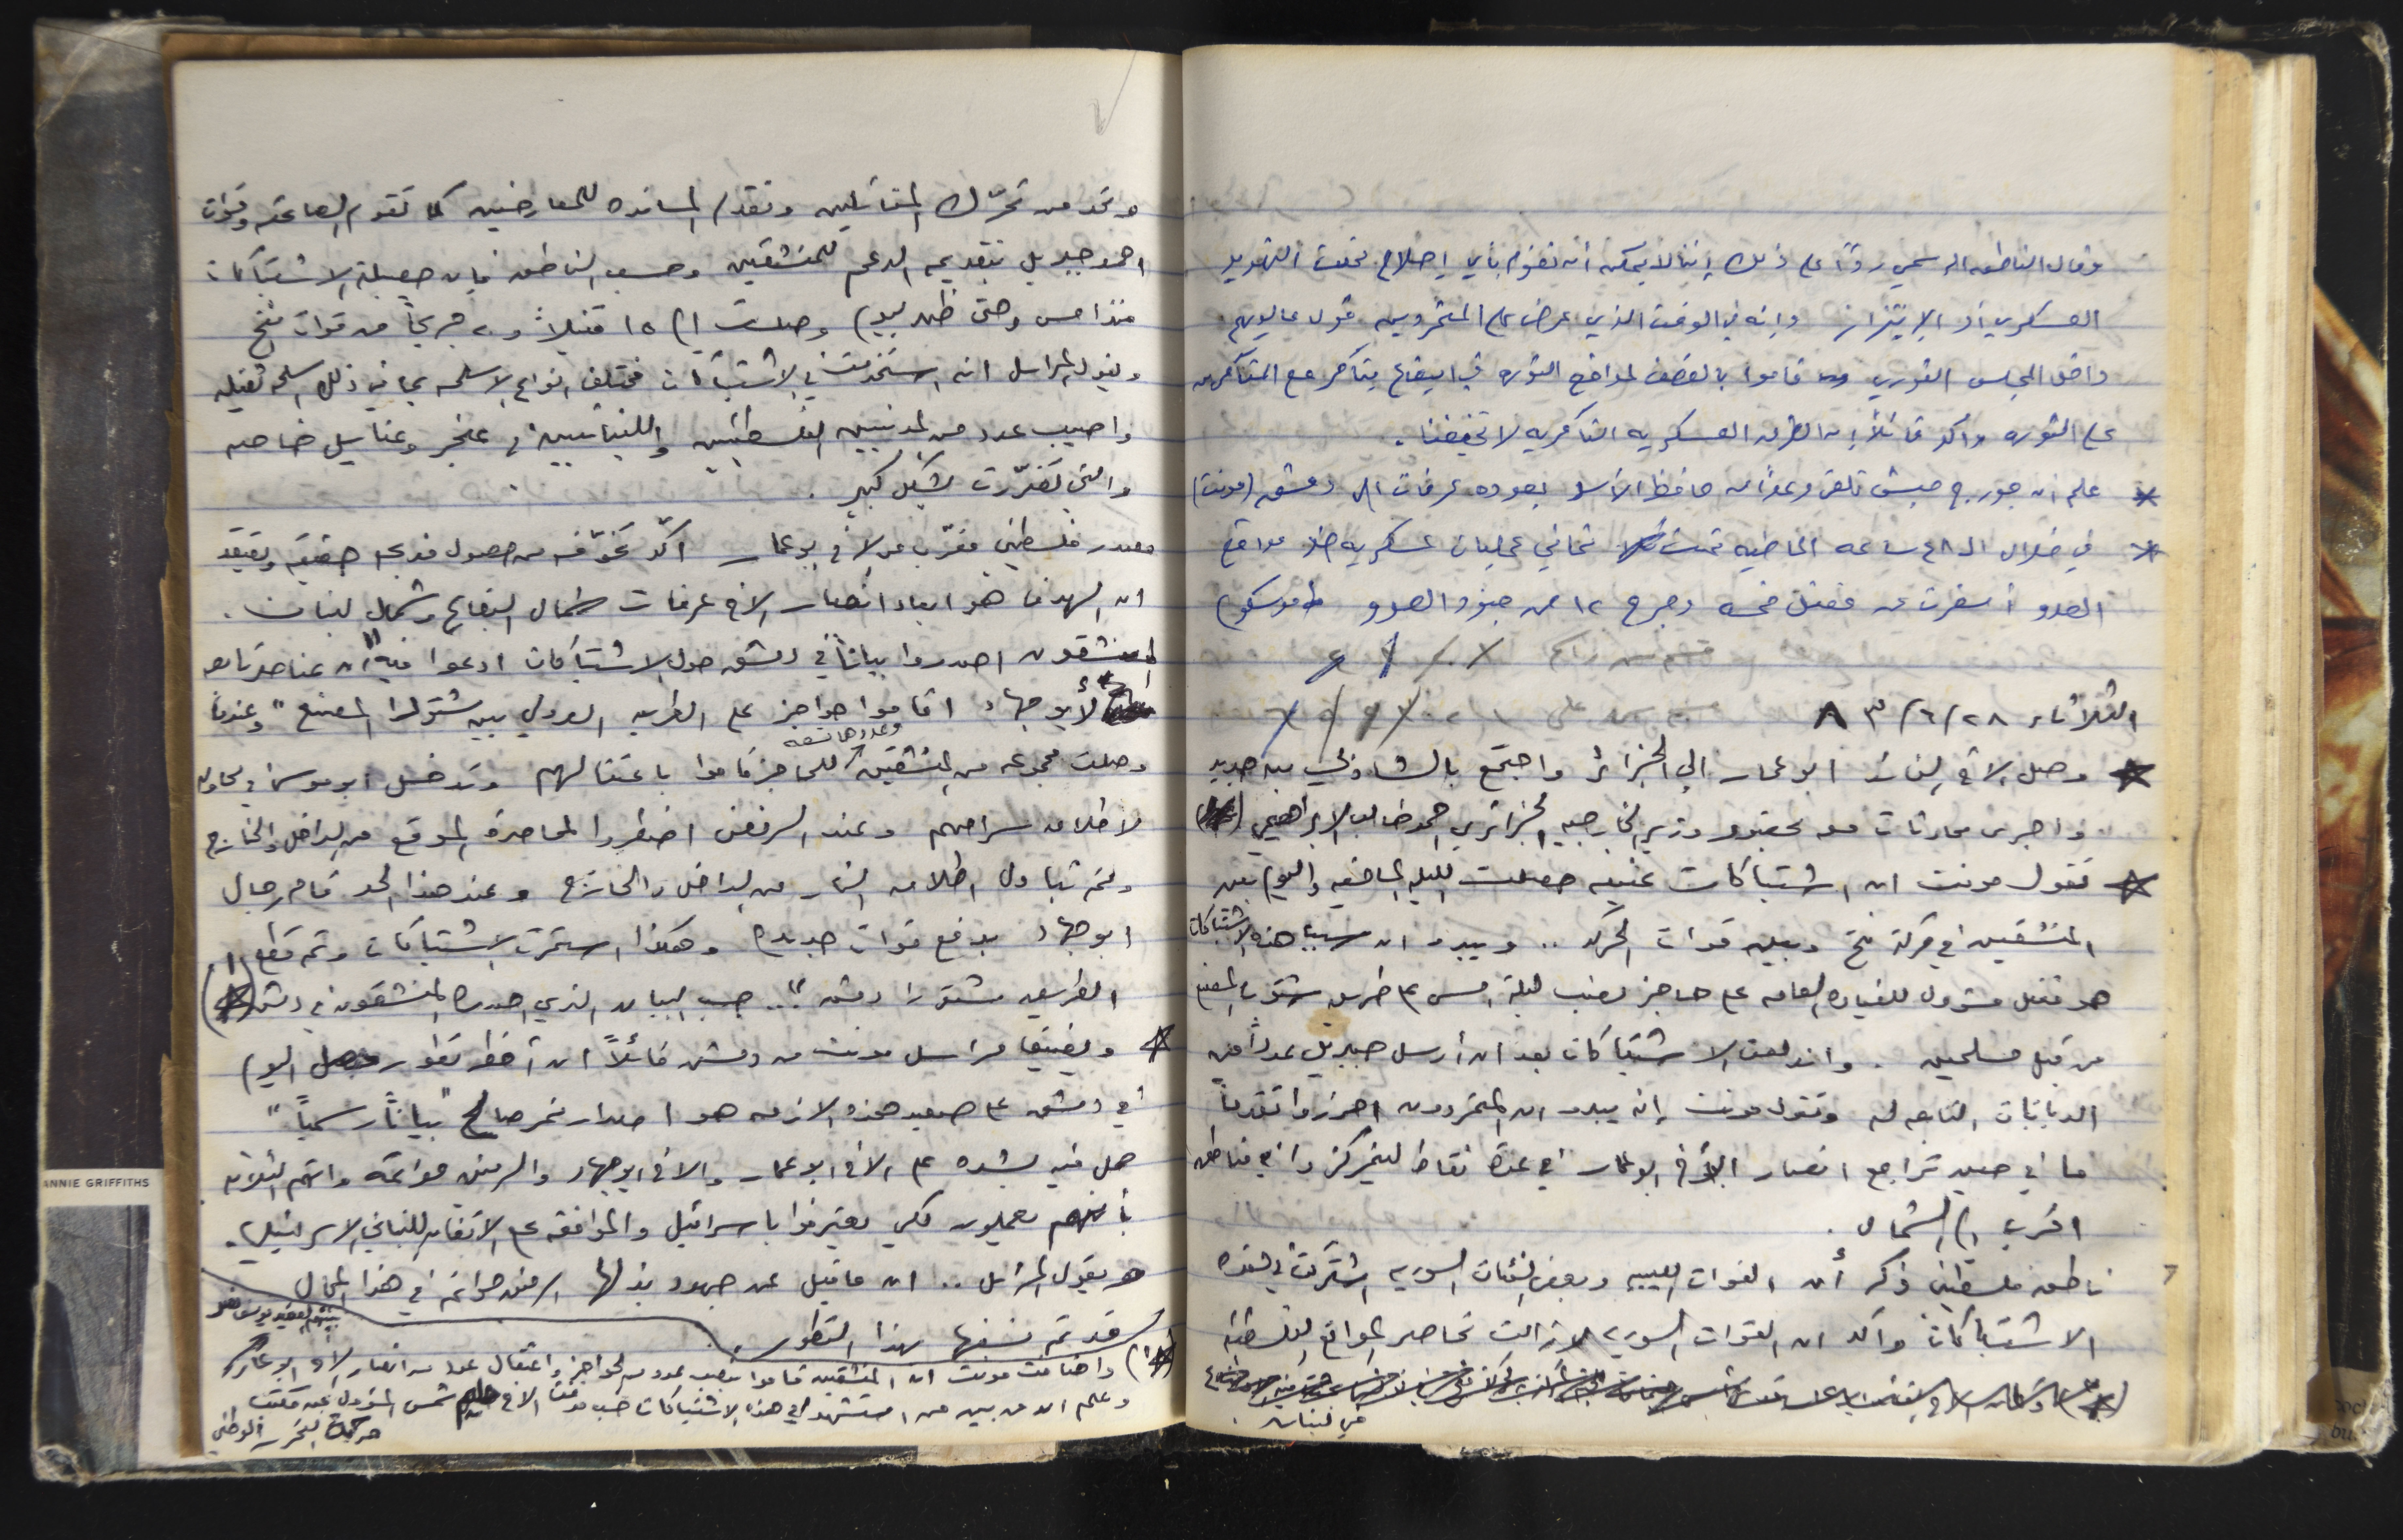 وقال الناطق الرسمي رداً على ذلك إننا لا يمكن أن نقوم بأي إصلاح تحت التهديد
العسكري أو الابتزاز وإنه في الوقت الذي عرض على المتمردين
داخل المجلس الثوري قاموا بالقصف لمواقع الثوره في البقاع بتآمر مع المتآمرين
على الثوره وأكد قائلاً إن الطرق العسكريه التآمريه لا تخيفنا.
* علم ان جورج حبش تلقى وعداً من حافظ الأسد بعوده عرفات الى دمشق (مونت)
* في خلال الـ ٤٨ ساعه الماضيه تمت ثماني عمليات عسكريه ضد مواقع
العدو أسفرت عن مقتل خمسه وجرح ١٢ من جنود العدو (موسكو)
الثلاثاء ٢٨/٦/٨٣
* وصل الاخ القائد ابو عمار إلى الجزائر واجتمع بالشاذلي بن جديد
واجرى محادثات معه بحضور وزير الخارجيه الجزائري احمد طالب الابراهيمي
* تقول مونت ان اشتباكات عنيفه حصلت الليله الماضيه واليوم بين
المنشقين في حركة فتح وبين قوات الحركه .. ويبدو ان سبب هذه الاشتباكات
هو مقتل مسؤول للقياده العامه على حاجز نصب ليلة امس على طريق شتورا المصنع
من قبل مسلحين . واندلعت الاشتباكات بعد ان أرسل جبريل عدداً من
الدبابات التابعه له وتقول مونت إنه يبدو ان المتمردون احرزوا تقدماً
ما في حين تراجع انصار الأخ ابو عمار في عدة نقاط ليتمركز وا في مناطق
اقرب الى الشمال .
ناطق فلسطيني ذكر أن القوات الليبيه وبعض الفئات السوريه اشتركت في هذه
الاشتباكات وأكد ان القوات السوريه لازالت تحاصر المواقع الفلسطينيه
في لبنان .
وتحد من تحرّك المقاتلين وتقدم المسانده للمعارضين كما تقوم الصاعقه وقوات
احمد جبريل بتقديم الدعم للمنشقين وحسب الناطق فإن حصيلة الاشتباكات
منذ امس وحتى ظهر اليوم وصلت الى ١٥ قتيلاً و ٢٠ جريحاً من قوات فتح
ويقول المراسل انه استخدمت في الاشتباكات مختلف انواع الاسلحه بما في ذلك اسلحه ثقيله
واصيب عدد من المدنيين الفلسطينيين واللبنانيين في عنجر وعنابيل خاصه
والتي تضررت بشكل كبير .
مصدر فلسطيني مقرّب من الاخ ابو عمار اكّد تخوّفه من حصول مذبحه حقيقيه ويعتقد
ان الهدف هو ابعاد انصار الاخ عرفات شمال البقاع وشمال لبنان .
المنشقون اصدروا بياناً في دمشق حول الاشتباكات ادعوا فيه "ان عناصر تابعه
لأبو جهاد اقاموا حواجز على الطريق الدولي بين شتورا المصنع" وعندما
وصلت مجموعه من المنشقين وعددها تسعه للحاجز قاموا باعتقالهم وتدخل ابو موسى في محاوله
لاطلاق سراحهم وعند الرفض اضطروا لمحاصرة الموقع من الداخل والخارج
وتم تبادل اطلاق النار من الداخل والخارج وعند هذا الحد قام رجال
ابو جهاد بدفع قوات جديده وهكذا استمرت الاشتباكات وتم قطع
الطريق شتورا دمشق".. حسب البيان الذي اصدره المنشقون في دمشق
* ويضيف مراسل مونت من دمشق قائلاً ان أخطر تطور حصل اليوم
في دمشق على صعيد هذه الازمه هو اصدار نمر صالح "بياناً رسمياً"
حمل فيه بشده على الاخ ابو عمار والاخ ابو جهاد والرفيق حواتمه واتهم الثلاثه
بأنهم يعملون لكي يعترفوا باسرائيل والموافقه على الاتفاق اللبناني الاسرائيلي.
ويقول المراسل .. ان ما قيل عن جهود بذلها الرفيق حواتمه في هذا المجال
قد تم نسفها بهذا التطور .
واضافت مونت ان المنشقين قاموا بنصب عدد من الحواجز واعتقال عدد من انصار الاخ ابو عمار
وعلم ان من بين من استشهد في هذه الاشتباكات حسب مونت الاخ شمس المسؤول عن مكتب
حركة التحرر الوطني
ANNIE GRIFFITHS